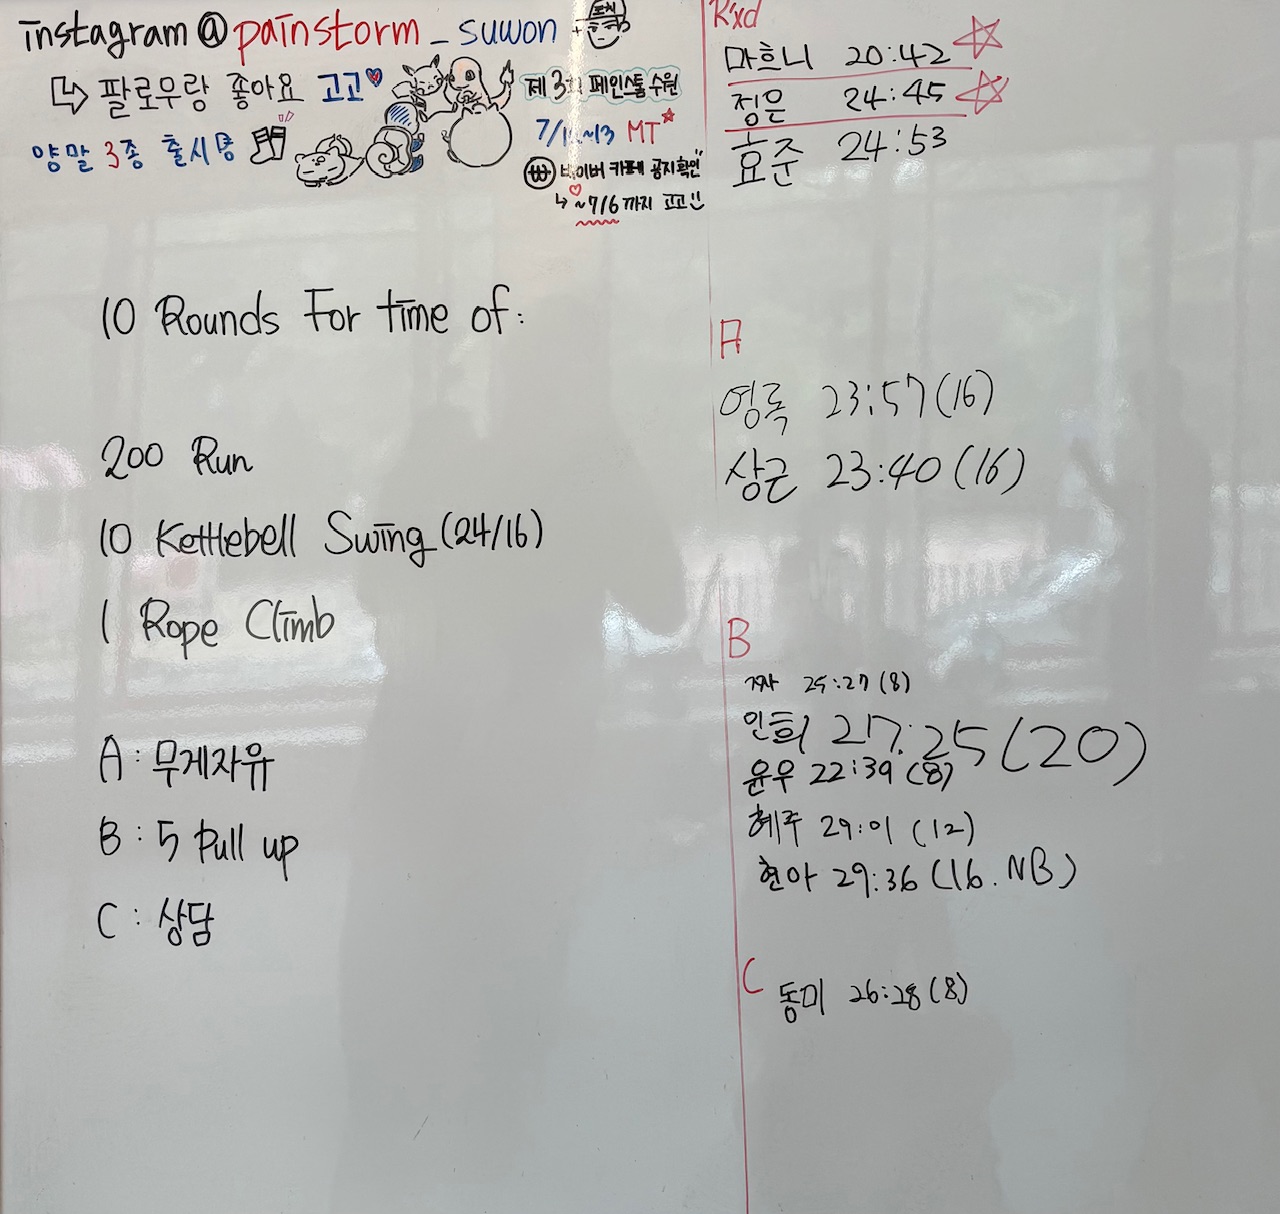 instagram@painstorm_suwon
↳ 팔로우랑 좋아요 고고♥
양말 3종 출시중
코치
제 3회 페인스톰 수원
7/12~13 MT★
네이버 카페 공지확인
↳ ~7/6까지 고고!!
10 Rounds For time of:
200 Run
10 Kettlebell Swing (24/16)
1 Rope Climb
A : 무게자유
B : 5 Pull up
C : 상담
R'xd
마흐니 20:42 ☆
정은 24:45 ☆
효준 24:53
A
영록 23:57 (16)
상근 23:40 (16)
B
25:27 (8)
인희 27:25 (20)
윤우 22:39 (8)
혜주 29:01 (12)
현아 29:36 (16. NB)
C
동미 26:28 (8)